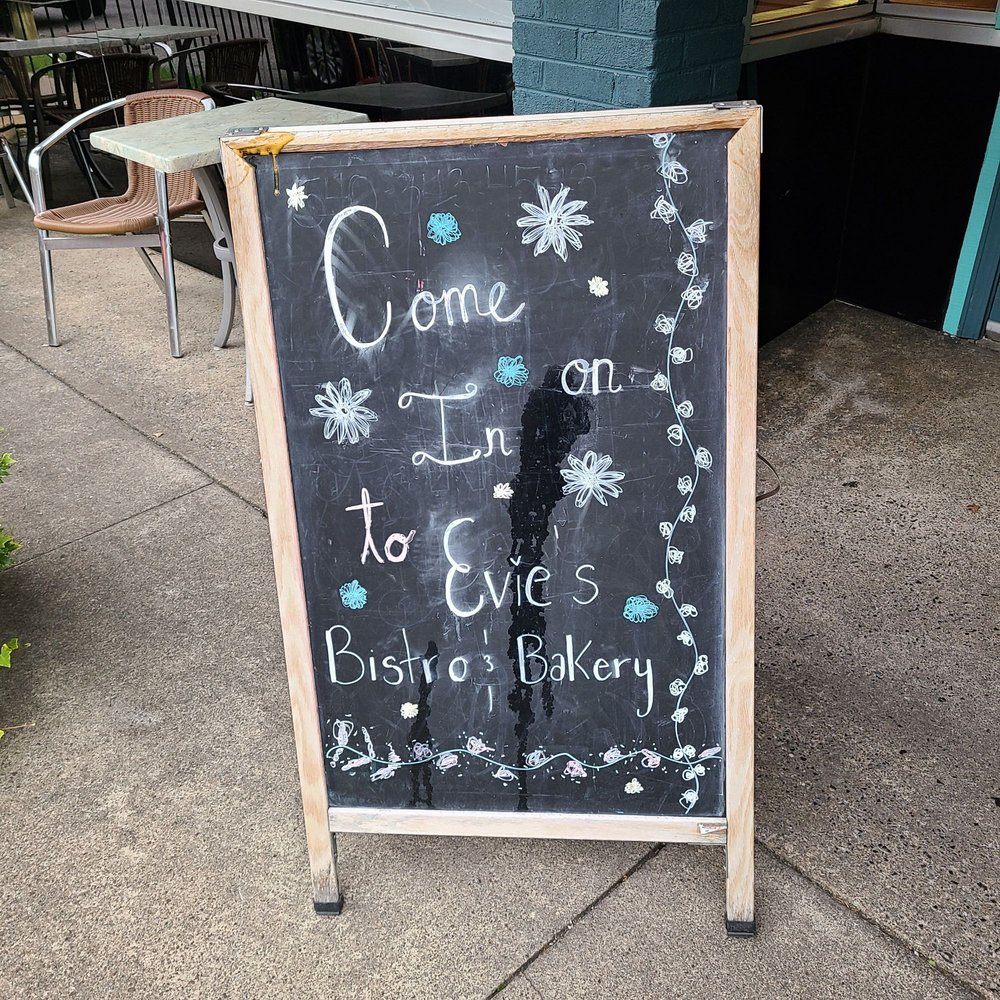 Come
on
In
to Evie's
Bistro & Bakery